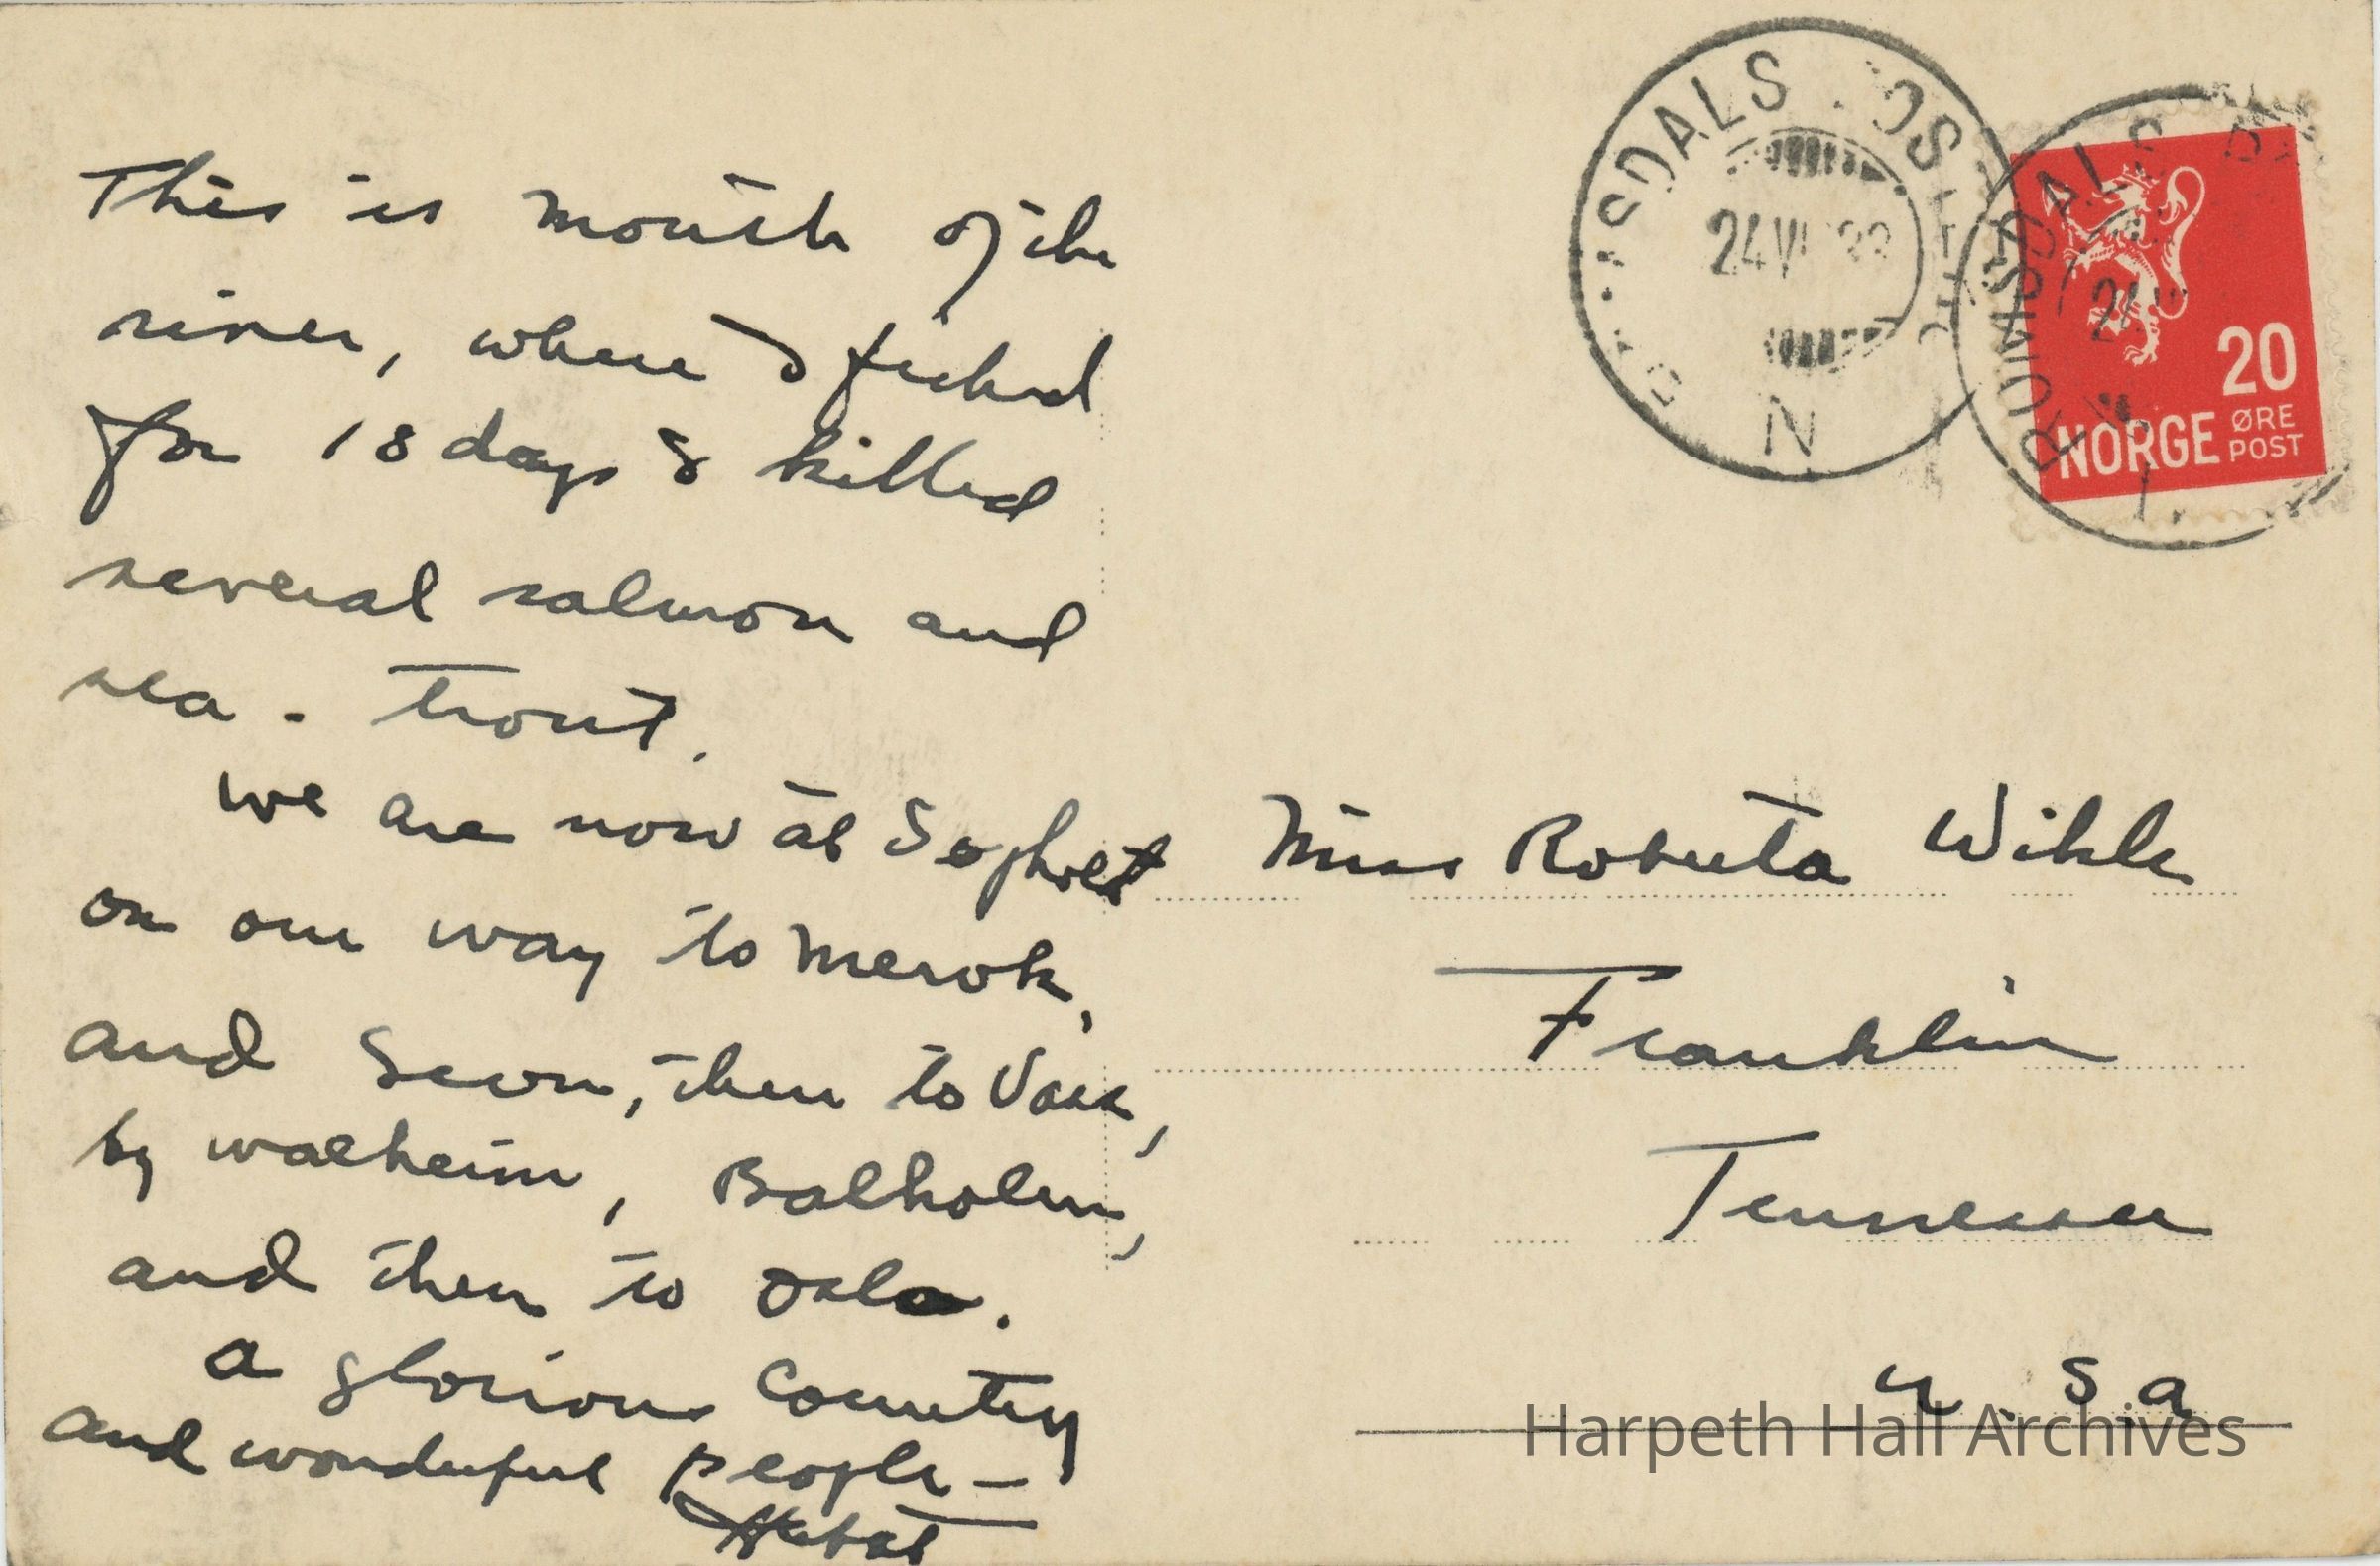 This is mouth of the
river, where I fished
for 18 days & killed
several salmon and
sea-trout.
we are now at Sopholt
on our way to Merok,
and Seon, then to Voss,
by walheim, Balholm,
and then to Oslo.
a glorious Country
and wonderful people—
SDALS
24 VI
N
ROMSDALS
24
20
NORGE ØRE
POST
Miss Roberta Wikle
Franklin
Tennessee
U.S.a
Harpeth Hall Archives